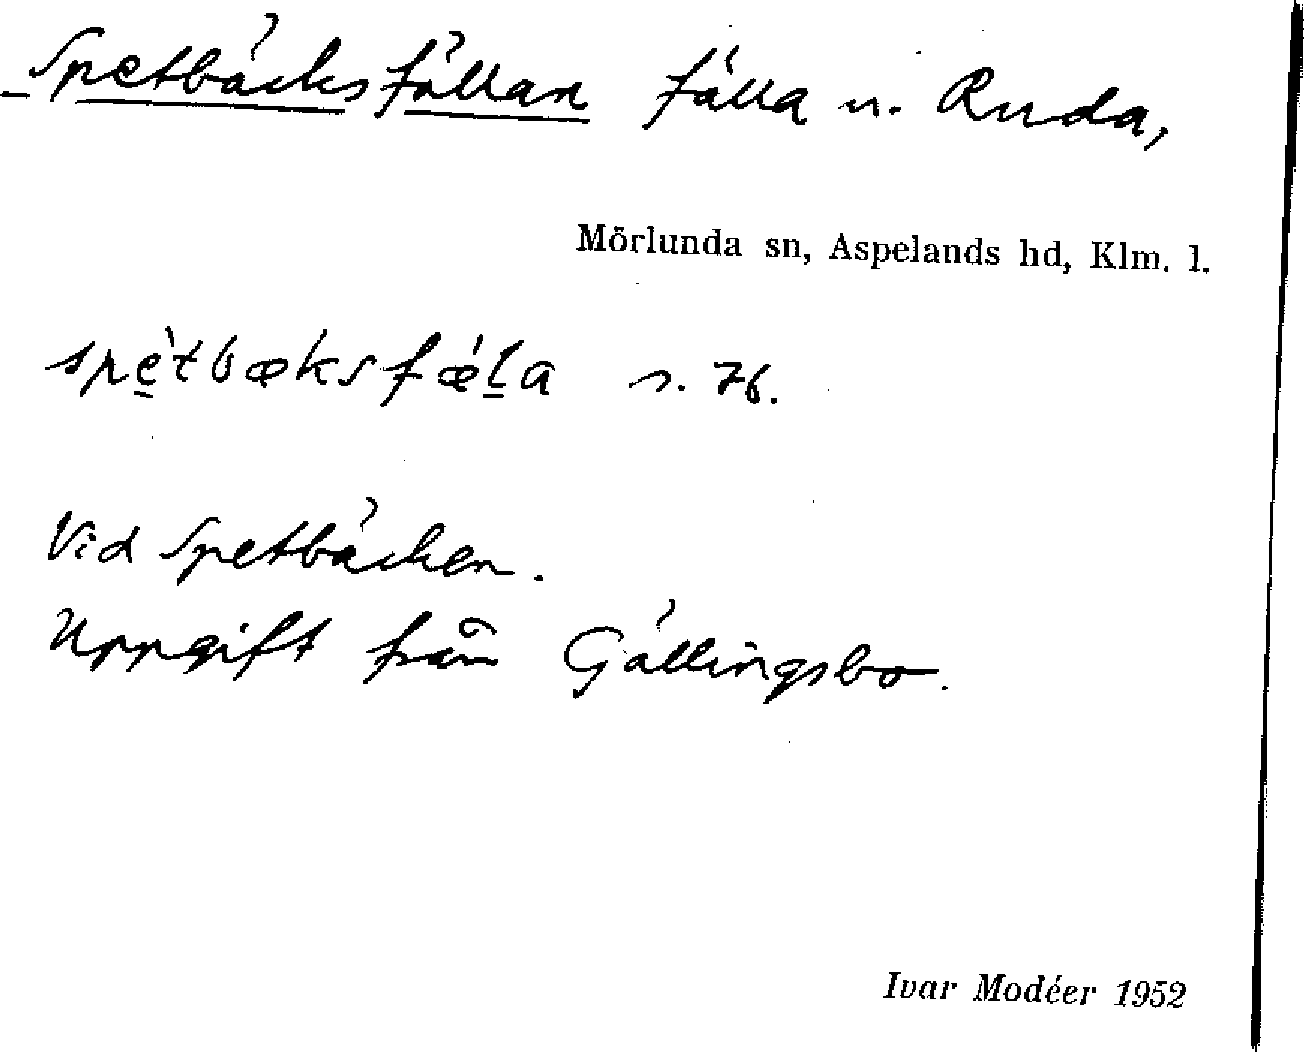 Spetbäcksfällan fälla u. Ruda,
Mörlunda sn, Aspelands hd, Klm. l.
spètbæksfǽl̠a s. 76.
Vid Spetbäcken.
Uppgift från Gällingsbo.
Ivar Modéer 1952